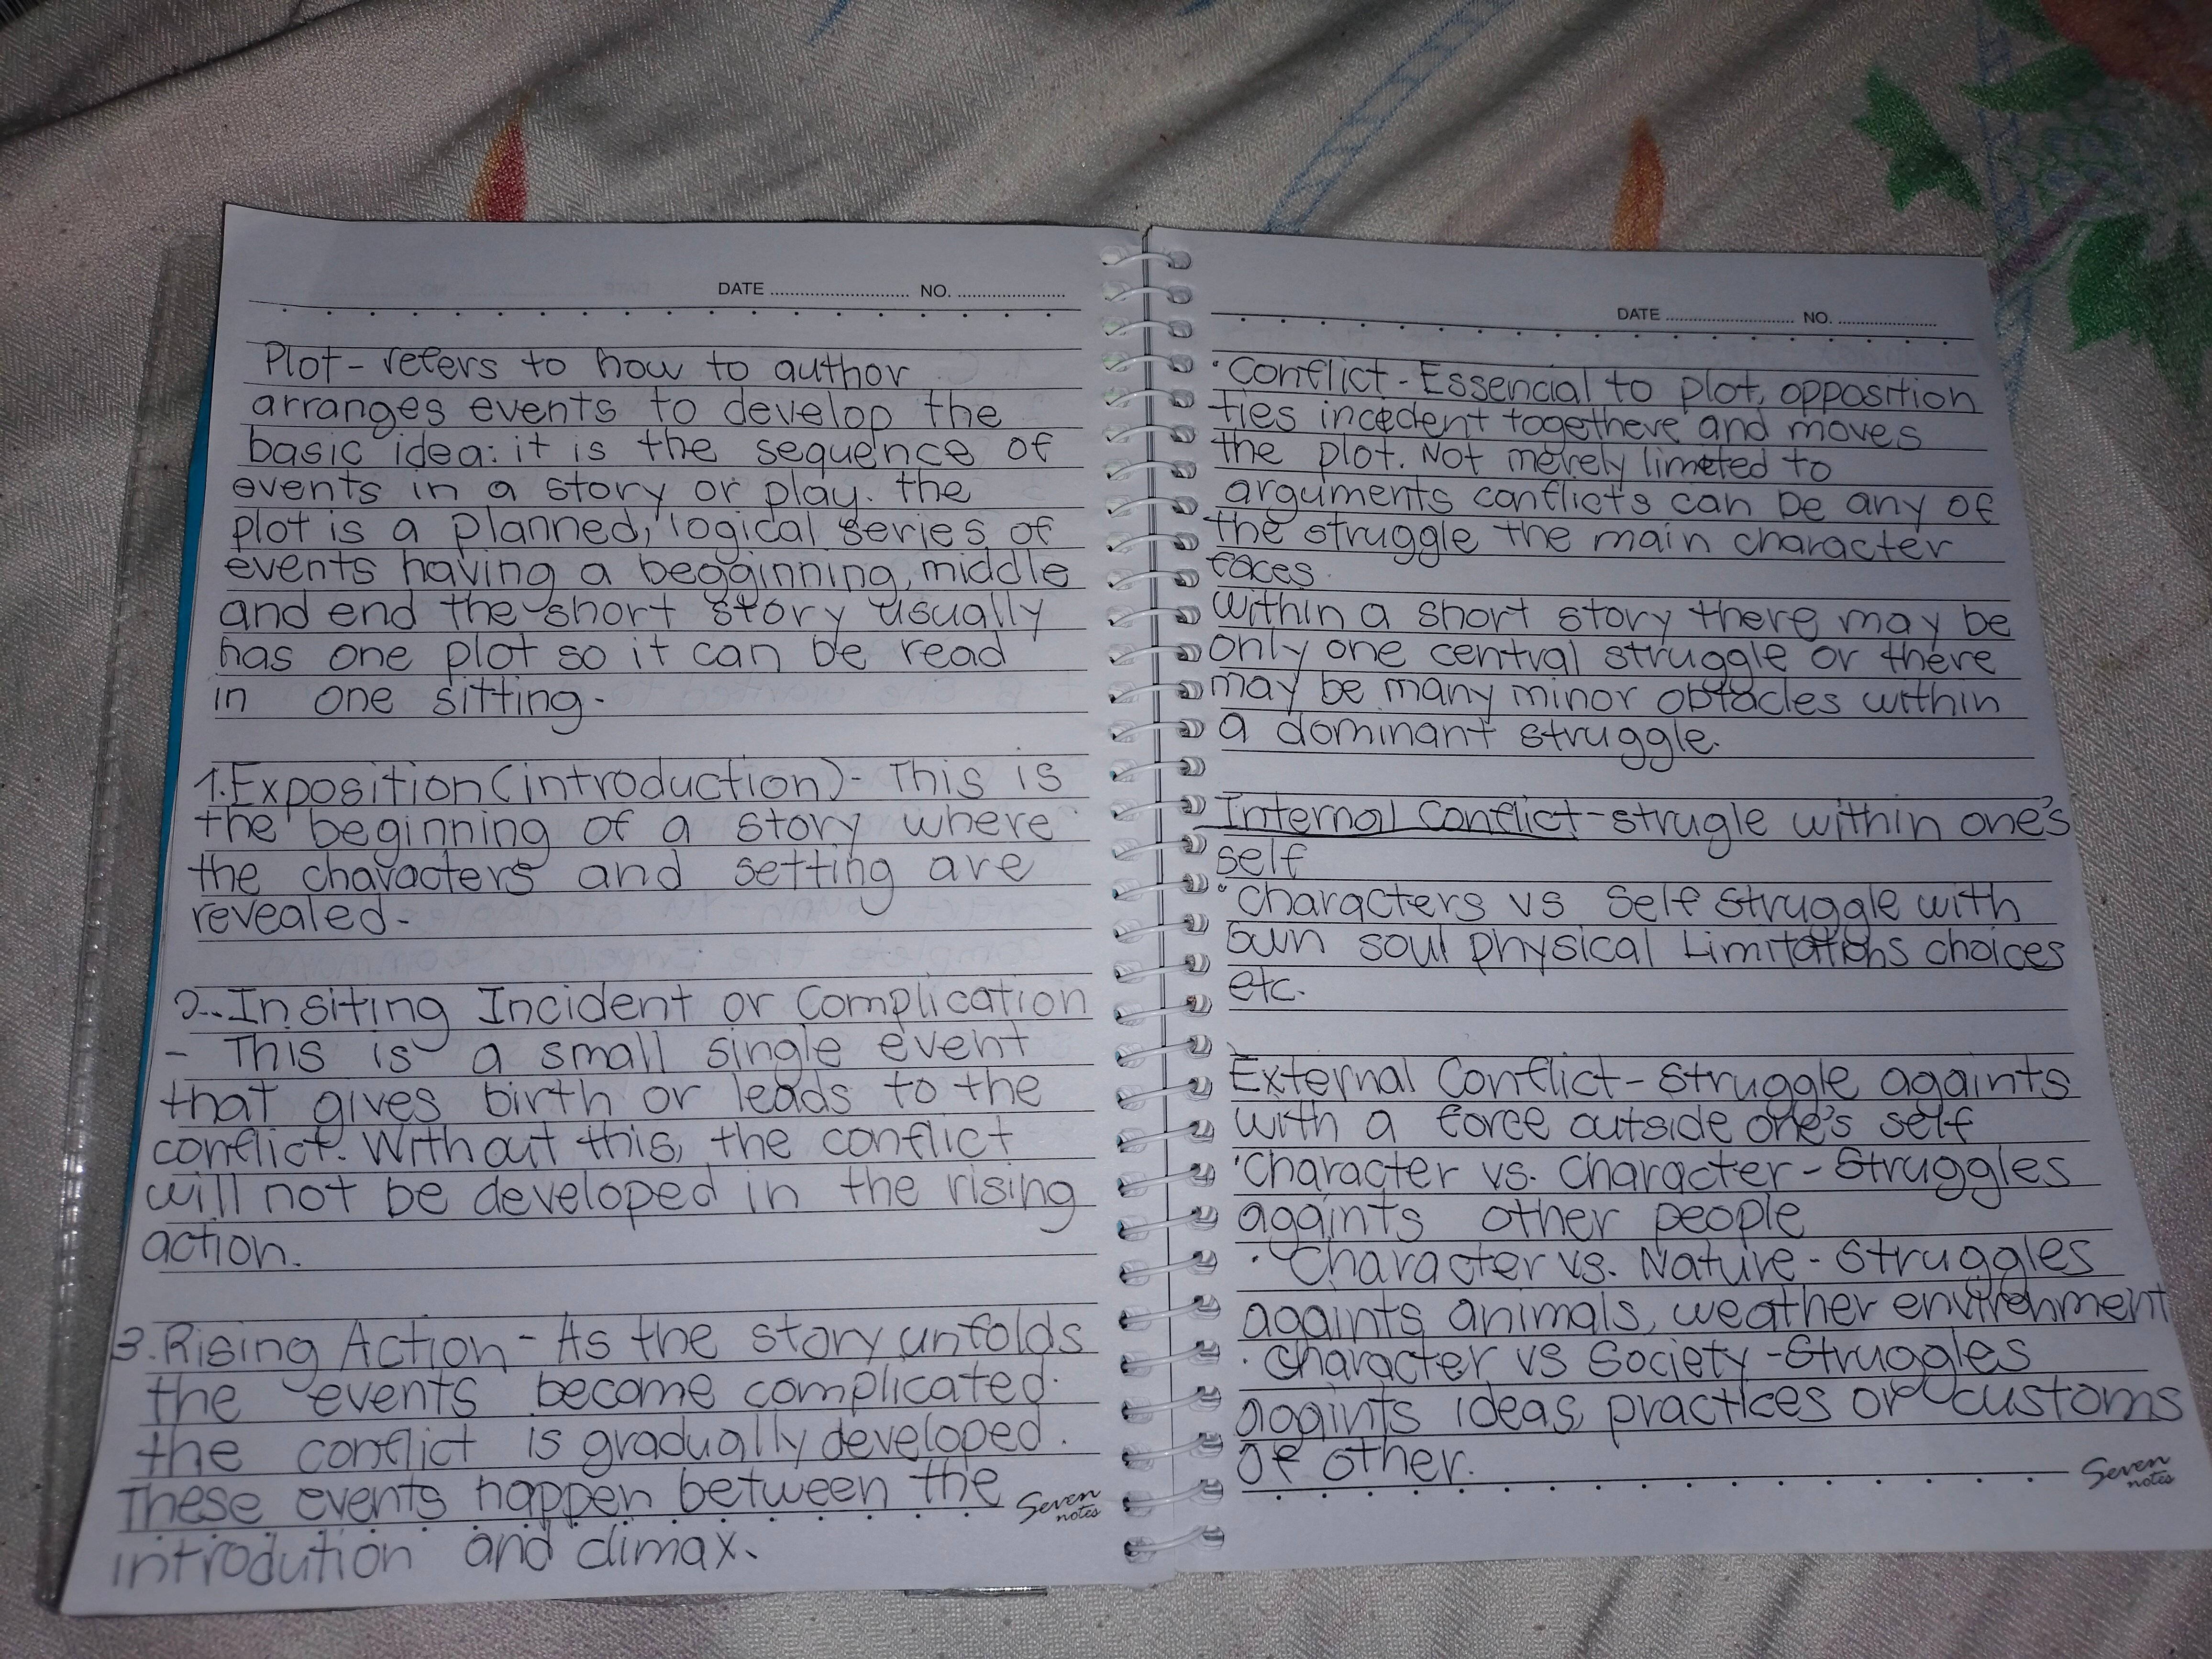 DATE NO.
Plot - refers to how to author
arranges events to develop the
basic idea: it is the sequence of
events in a story or play. the
plot is a planned, logical series of
events having a begginning, middle
and end the short story usually
has one plot so it can be read
in one sitting.
1. Exposition (introduction) - This is
the beginning of a story where
the characters and setting are
revealed.
2. Insiting Incident or Complication
- This is a small single event
that gives birth or leads to the
conflict. Without this, the conflict
will not be developed in the rising
action.
3. Rising Action - As the story unfolds
the events become complicated.
the conflict is gradually developed.
These events happen between the
introdution and climax.
Seven notes
DATE NO.
• Conflict - Essencial to plot, opposition
ties incedent togethere and moves
the plot. Not merely limeted to
arguments conflicts can be any of
the struggle the main character
faces.
within a short story there may be
only one central struggle or there
may be many minor obstacles within
a dominant struggle.
Internal Conflict - strugle within one's
self
• Characters vs Self struggle with
own soul physical Limitations choices
etc.
External Conflict - struggle againts
with a force outside one's self
• Character vs. Character - Struggles
againts other people
• Character vs. Nature - Struggles
againts animals, weather environment
• Character vs Society - Struggles
againts ideas, practices or customs
of other.
Seven notes